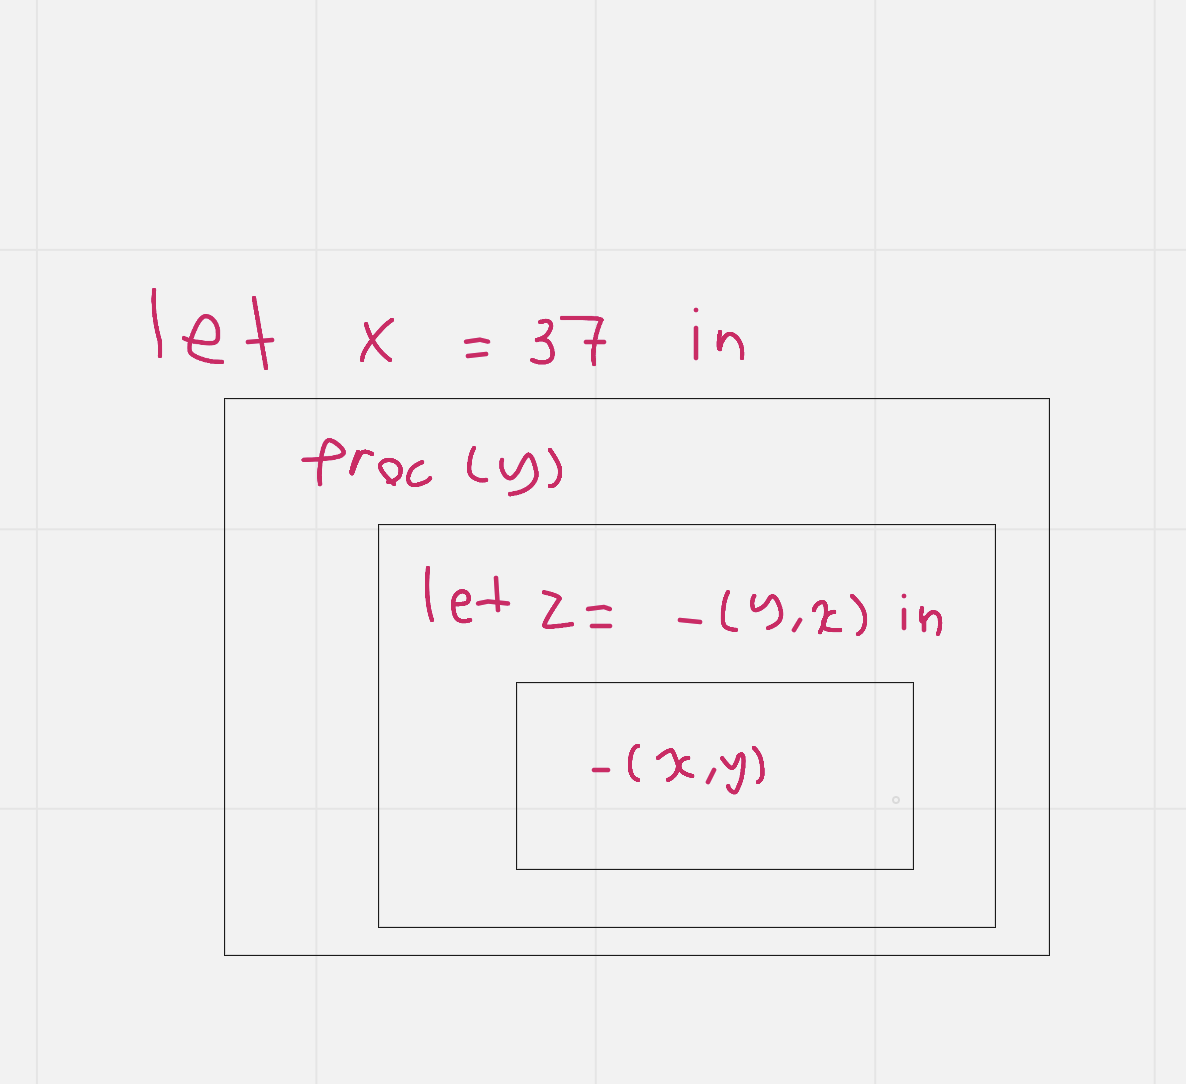 let x = 37 in
proc (y)
let z = -(y,x) in
-(x,y)